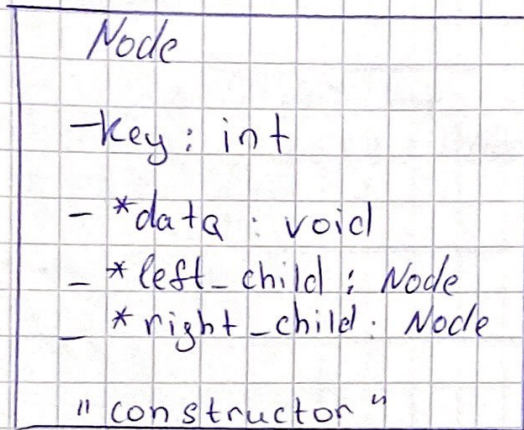 Node
-key: int
- *data : void
- *left_child : Node
- *right_child : Node
"constructor"